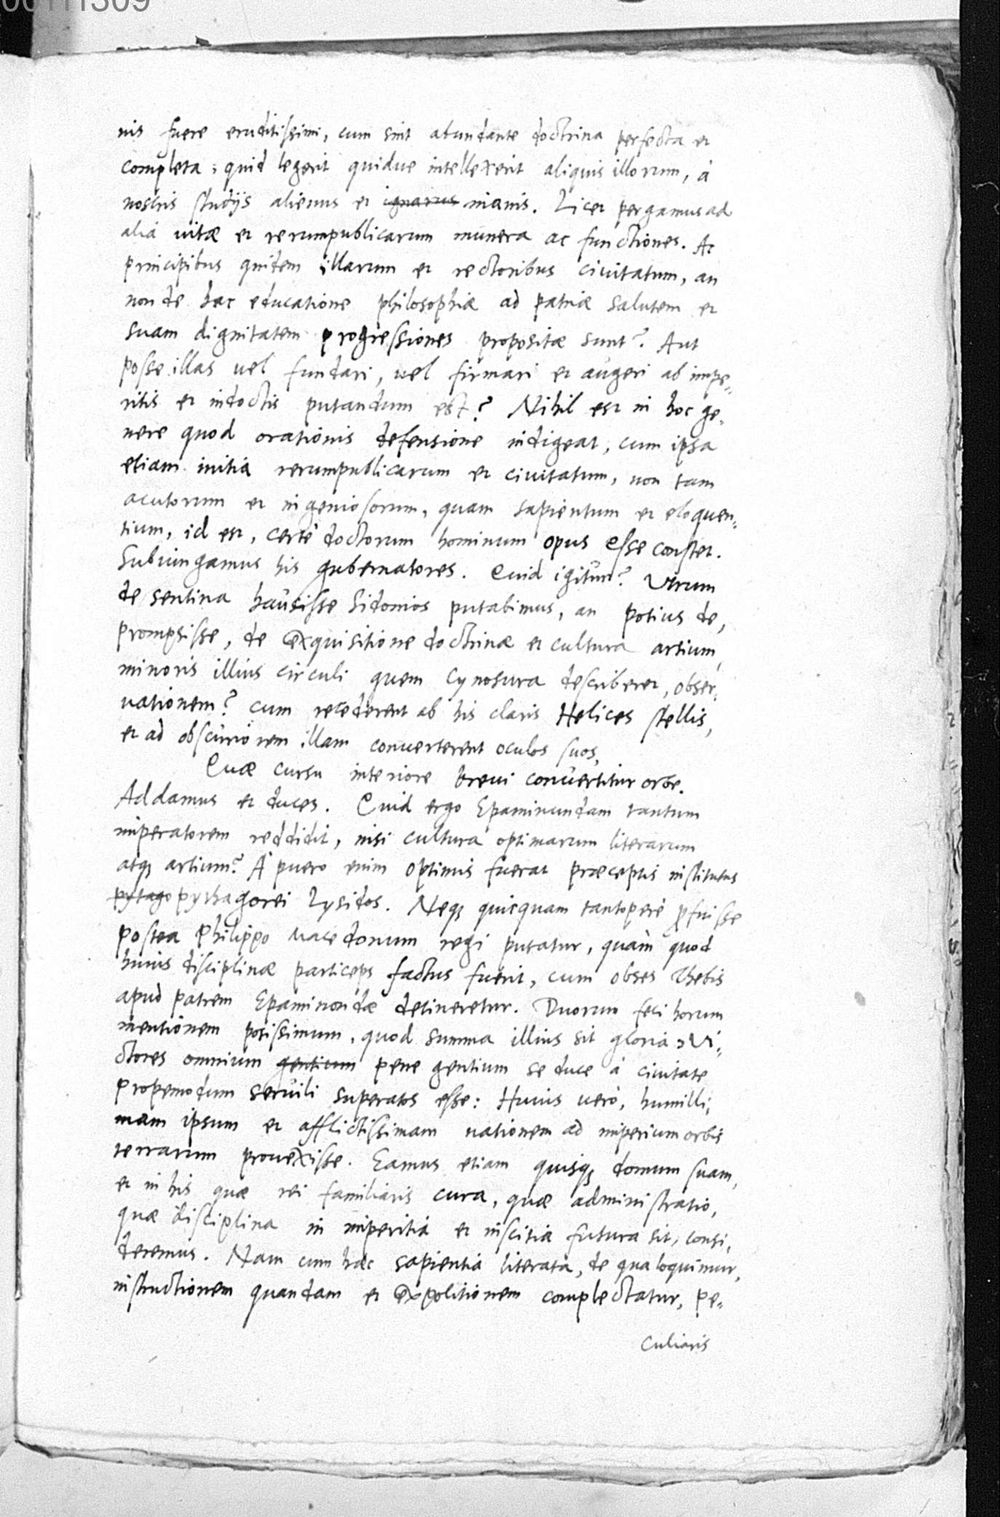 00111309
nis fuere eruditissimi, cum sint abundante doctrina perfecta et
completa: quid legerit quidue intellexerit aliquis illorum, à
nostris studijs alienus et ignarus inanis. Licet pergamus ad
alia uitæ et rerumpublicarum munera ac functiones. Ac
principibus quidem illarum et rectoribus ciuitatum, an
non de hac educatione philosophiæ ad patriæ salutem et
suam dignitatem progressiones propositæ sunt? Aut
posse illas uel fundari, uel firmari et augeri ab impe-
ritis et indoctis putandum est? Nihil est in hoc ge-
nere quod orationis defensione indigeat, cum ipsa
etiam initia rerumpublicarum et ciuitatum, non tam
acutorum et ingeniosorum, quam sapientum et eloquen-
tium, id est, certè doctorum hominum opus esse constet.
Subiungamus his gubernatores. Quid igitur? Vtrum
de sentina hausisse Sidonios putabimus, an potius de,
prompsisse, de exquisitione doctrinæ et cultura artium
minoris illius circuli quem Cynosura describeret, obser-
uationem? cum recederent ab his claris Helices stellis,
et ad obscuriorem illam conuerterent oculos suos,
Quæ cursu interiore breui conuertitur orbe.
Addamus et duces. Quid ergo Epaminundam tantum
imperatorem reddidit, nisi cultura optimarum literarum
atq; artium? A puero enim optimis fuerat præceptis institutus
pytago pythagorei Lysidos. Neq; quicquam tantoperè profuisse
postea Philippo Macedonum regi putatur, quàm quod
huius disciplinæ particeps factus fuerit, cum obses Thebis
apud patrem Epaminondæ detineretur. Duorum feci horum
mentionem potissimum, quod summa illius sit gloria, Vi-
ctores omnium gentium pene gentium se duce à ciuitate
propemodum seruili superatos esse: Huius uerò, humilli,
mam ipsum et afflictissimam nationem ad imperium orbis
terrarum prouexisse. Eamus etiam quisq; domum suam,
et in his quæ rei familiaris cura, quæ administratio,
quæ disciplina in imperitia et inscitia futura sit, consi,
deremus. Nam cum hæc sapientia literata, de qua loquimur,
instructionem quandam et expolitionem complectatur, pe-
culiaris